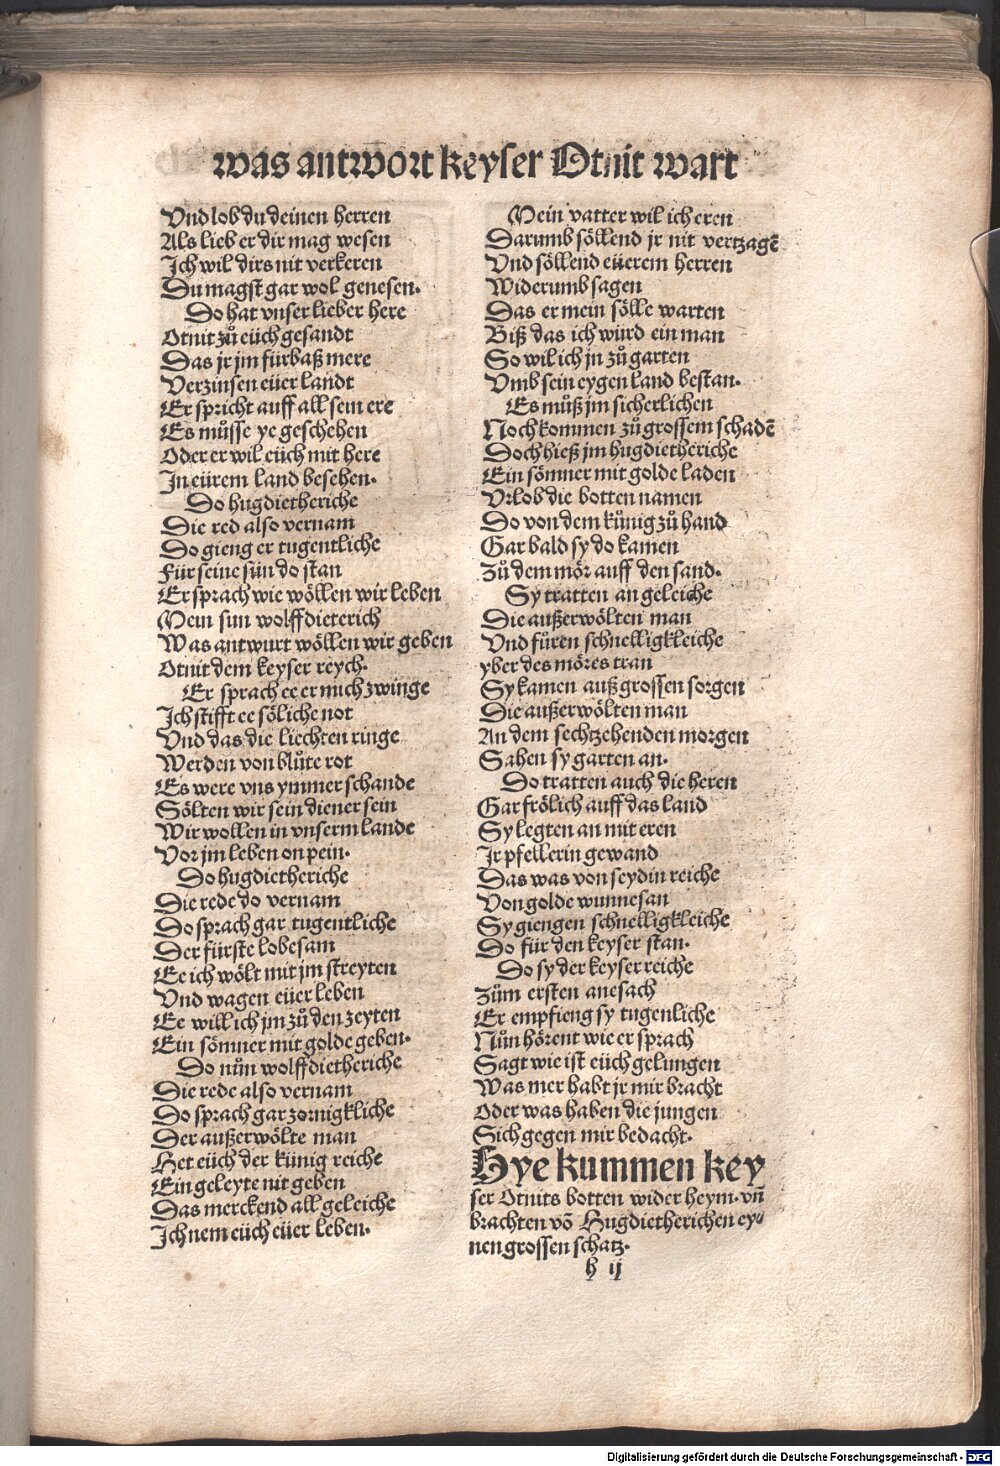 was antwort keyser Otnit wart
Vnd lob du deinen herren
Als lieb er dir mag wesen
Ich wil dirs nit verkeren
Du magst gar wol genesen.
Do hat vnser lieber here
Otnit zů eüch gesandt
Das jr jm fürbaß mere
Verzinsen eüer landt
Er spricht auff all sein ere
Es müsse ye geschehen
Oder er wil eüch mit here
In eürem land besehen.
Do hugdietheriche
Die red also vernam
Do gieng er tugentliche
Für seine sün do stan
Er sprach wie wöllen wir leben
Mein sun wolffdieterich
Was antwurt wöllen wir geben
Otnit dem keyser reych.
Er sprach ee er mich zwinge
Ich stifft ee söliche not
Vnd das die liechten ringe
Werden von blůte rot
Es were vns ymmer schande
Sölten wir sein diener sein
Wir wollen in vnserm lande
Vor jm leben on pein.
Do hugdietheriche
Die rede do vernam
Do sprach gar tugentliche
Der fürste lobesam
Ee ich wölt mit jm streyten
Vnd wagen eüer leben
Ee will ich jm zů den zeyten
Ein sömner mit golde geben.
Do nůn wolffdietheriche
Die rede also vernam
Do sprach gar zornigkliche
Der außerwölte man
Het eüch der künig reiche
Ein geleyte nit geben
Das merckend all geleiche
Ich nem eüch eüer leben.
Mein vatter wil ich eren
Darumb söllend jr nit vertzagē
Vnd söllend eüerem herren
Widerumb sagen
Das er mein sölle warten
Biß das ich würd ein man
So wil ich jn zů garten
Vmb sein eygen land bestan.
Es můß jm sicherlichen
Noch kommen zů grossem schadē
Doch hieß jm hugdietheriche
Ein sömner mit golde laden
Vrlob die botten namen
Do von dem künig zů hand
Gar bald sy do kamen
Zů dem mör auff den sand.
Sy tratten an geleiche
Die außerwölten man
Vnd fůren schnelligkleiche
yber des möres tran
Sy kamen auß grossen sorgen
Die außerwölten man
An dem sechtzehenden morgen
Sahen sy garten an.
Do tratten auch die heren
Gar frölich auff das land
Sy legten an mit eren
Ir pfellerin gewand
Das was von seydin reiche
Von golde wunnesan
Sy giengen schnelligkleiche
Do für den keyser stan.
Do sy der keyser reiche
Zům ersten anesach
Er empfieng sy tugenliche
Nůn hörent wie er sprach
Sagt wie ist eüch gelungen
Was mer habt jr mir bracht
Oder was haben die jungen
Sich gegen mir bedacht.
Hye kummen key
ser Otnits botten wider heym. vñ
brachten vō Hugdietherichen ey⸗
nen grossen schatz.
h ij
Digitalisierung gefördert durch die Deutsche Forschungsgemeinschaft - DFG